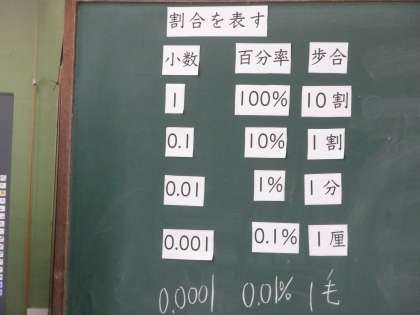 割合を表す
小数 百分率 歩合
1 100% 10割
0.1 10% 1割
0.01 1% 1分
0.001 0.1% 1厘
0.0001 0.01% 1毛